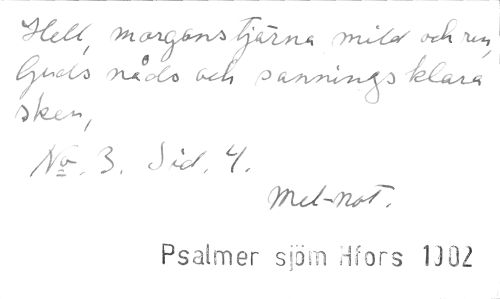 Hell, morgonstjärna mild och ren,
Guds nåds och sannings klara
sken,
No. 3. Sid. 4.
Mel-not.
Psalmer sjöm Hfors 1902